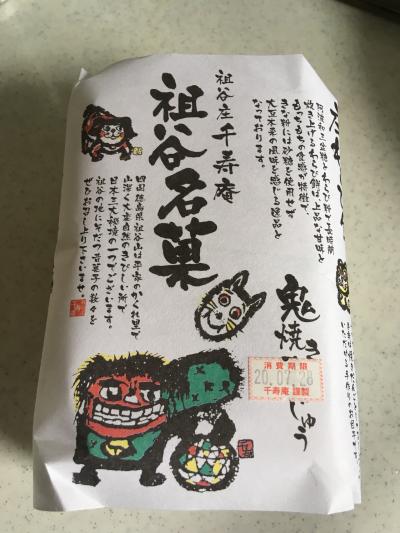 阿波和三盆糖とわらび粉で長時間
炊き上げるわらび餅は、上品な甘味と
もっちもちの食感が特徴で、
きな粉には砂糖を使用せず
大豆本来の風味を感じる逸品と
なっております。
祖谷庄千寿庵
祖谷名菓
四国徳島県祖谷山は平家のかくれ里で
山深く大自然のきびしい所で
日本三大秘境の一つでございます。
祖谷の地にそだつ昔菓子の数々を
ぜひお召し上り下さいませ
鬼焼き
じゅう
消費期限
20.07.28
千寿庵 謹製